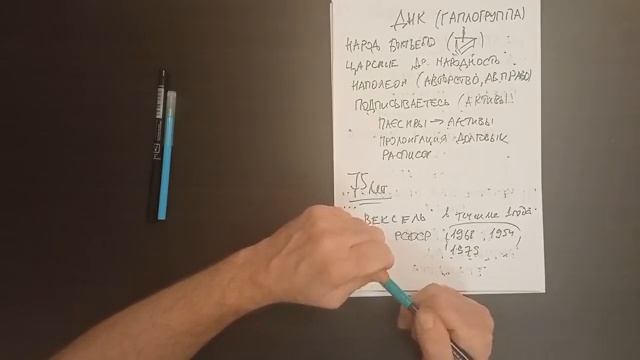 ДНК (ГАПЛОГРУППА)
НАРОД
ЦАРСКИЕ ДО НАРОДНОСТЬ
НАПОЛЕОН (АВТОРСТВО, АВ.ПРАВО)
ПОДПИСЫВАЕТЕСЬ (АКТИВЫ)
ПАССИВЫ → АКТИВЫ
ПРОЛОНГАЦИЯ ДОЛГОВЫХ
РАСПИСОК
75 лет
ВЕКСЕЛЬ в течение 1 года
РСФСР (1968, 1954)
1973